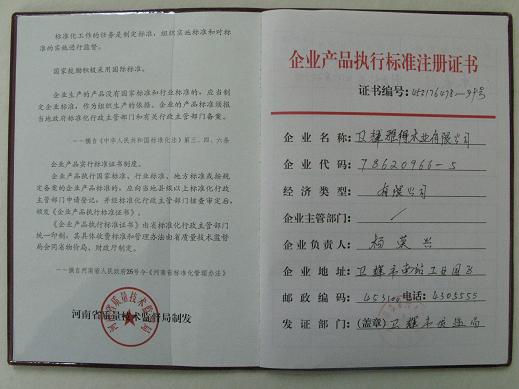 标准化工作的任务是制定标准，组织实施标准和对标
准的实施进行监督。
国家鼓励积极采用国际标准。
企业生产的产品没有国家标准和行业标准的，应当制
定企业标准，作为组织生产的依据。企业的产品标准须报
当地政府标准化行政主管部门和有关行政主管部门备案。
——摘自《中华人民共和国标准化法》第三、四、六条
企业产品实行标准证书制度。
企业产品执行国家标准、行业标准、地方标准或按规
定备案的企业产品标准的，应向当地县级以上标准化行政
主管部门申请登记，并经标准化行政主管部门核查审定后，
颁发《企业产品执行标准证书》。
《企业产品执行标准证书》由省标准化行政主管部门
统一印制，其具体收费标准和管理办法由省质量技术监督
局会同省物价局、财政厅制定。
——摘自河南省人民政府26号令·《河南省标准化管理办法》
河南省质量技术监督局制发
河南省质量技术监督局
企业产品执行标准注册证书
证书编号:
企业名称:卫辉雅得木业有限公司
企业代码:78620966-5
经济类型:有限公司
企业主管部门:/
企业负责人:杨英兴
企业地址:卫辉市
邮政编码:4531 电话:4305555
发证部门:(盖章)卫辉市质监局